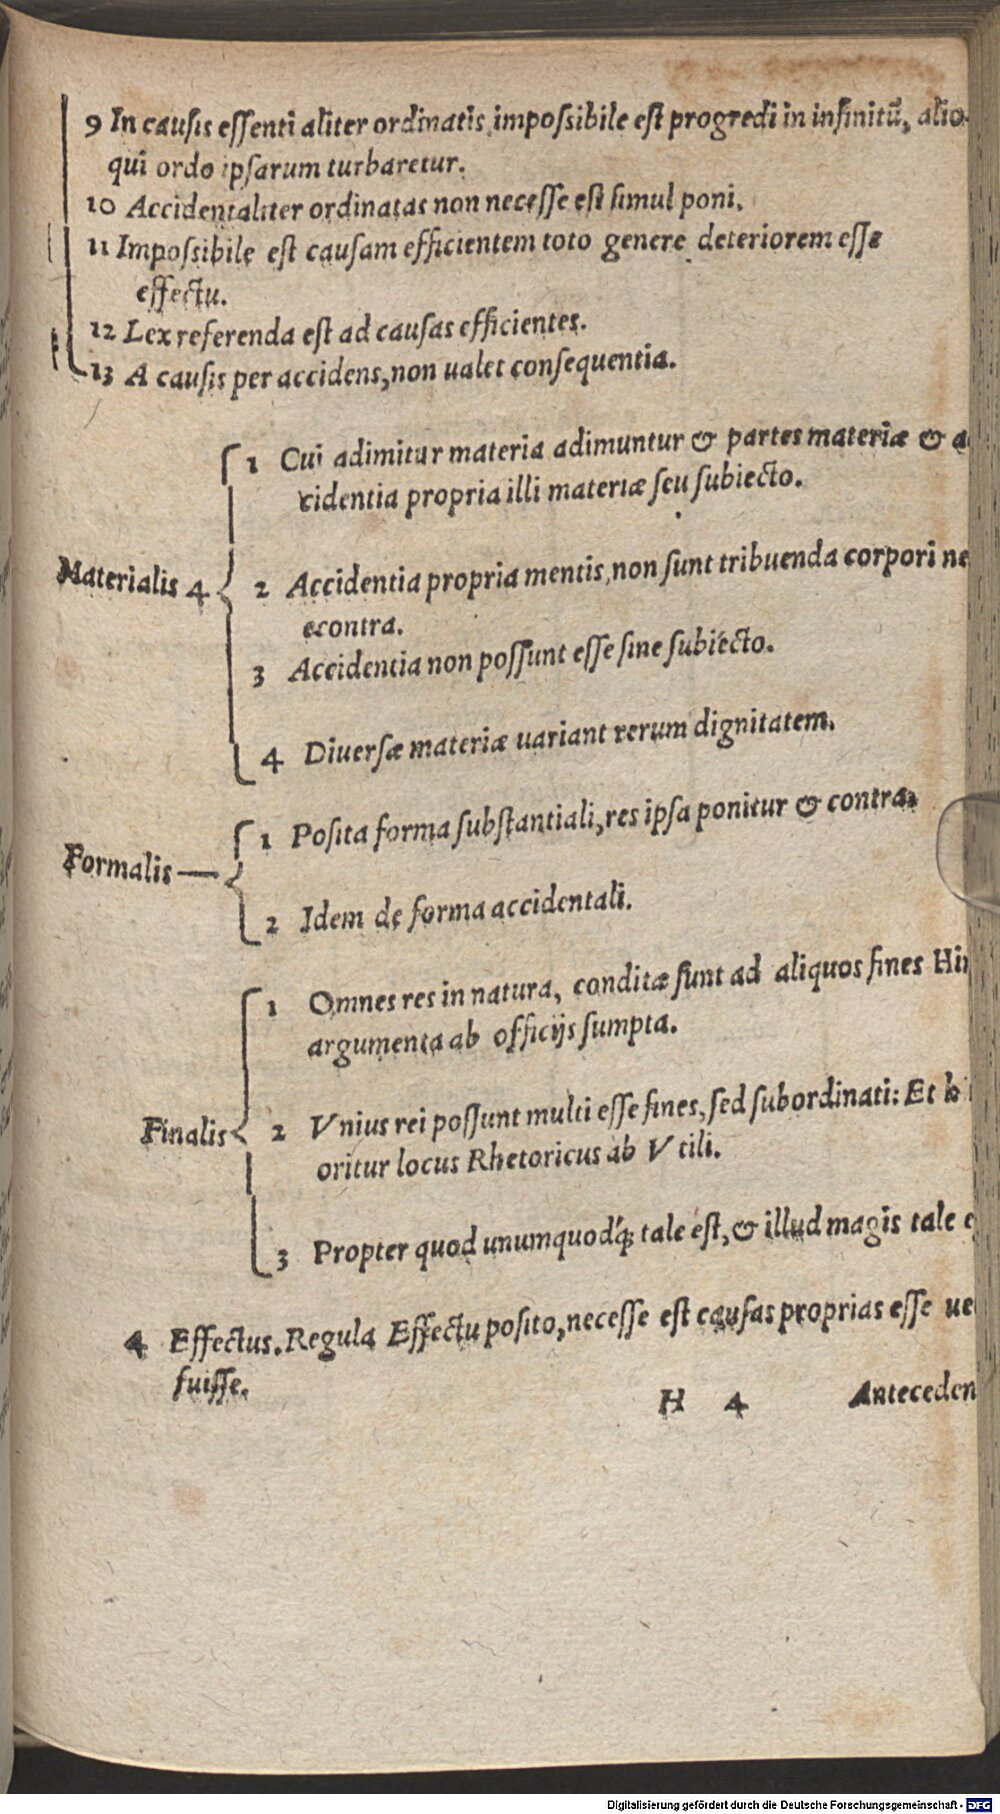 9 In causis essenti aliter ordinatis impossibile est progredi in infinitū, alio-
qui ordo ipsarum turbaretur.
10 Accidentaliter ordinatas non necesse est simul poni.
11 Impossibile est causam efficientem toto genere deteriorem esse
effectu.
12 Lex referenda est ad causas efficientes.
13 A causis per accidens, non ualet consequentia.
1 Cui adimitur materia adimuntur & partes materiæ & a
cidentia propria illi materiæ seu subiecto.
Materialis 4
2 Accidentia propria mentis, non sunt tribuenda corpori ne
econtra.
3 Accidentia non possunt esse sine subiecto.
4 Diuersæ materiæ uariant rerum dignitatem.
1 Posita forma substantiali, res ipsa ponitur & contra.
Formalis —
2 Idem de forma accidentali.
1 Omnes res in natura, conditæ sunt ad aliquos fines Hin
argumenta ab officijs sumpta.
Finalis
2 Vnius rei possunt multi esse fines, sed subordinati: Et h
oritur locus Rhetoricus ab Vtili.
3 Propter quod unumquodq́; tale est, & illud magis tale e
4 Effectus. Regula Effectu posito, necesse est causas proprias esse ue
fuisse.
H 4 Anteceden
Digitalisierung gefördert durch die Deutsche Forschungsgemeinschaft - DFG